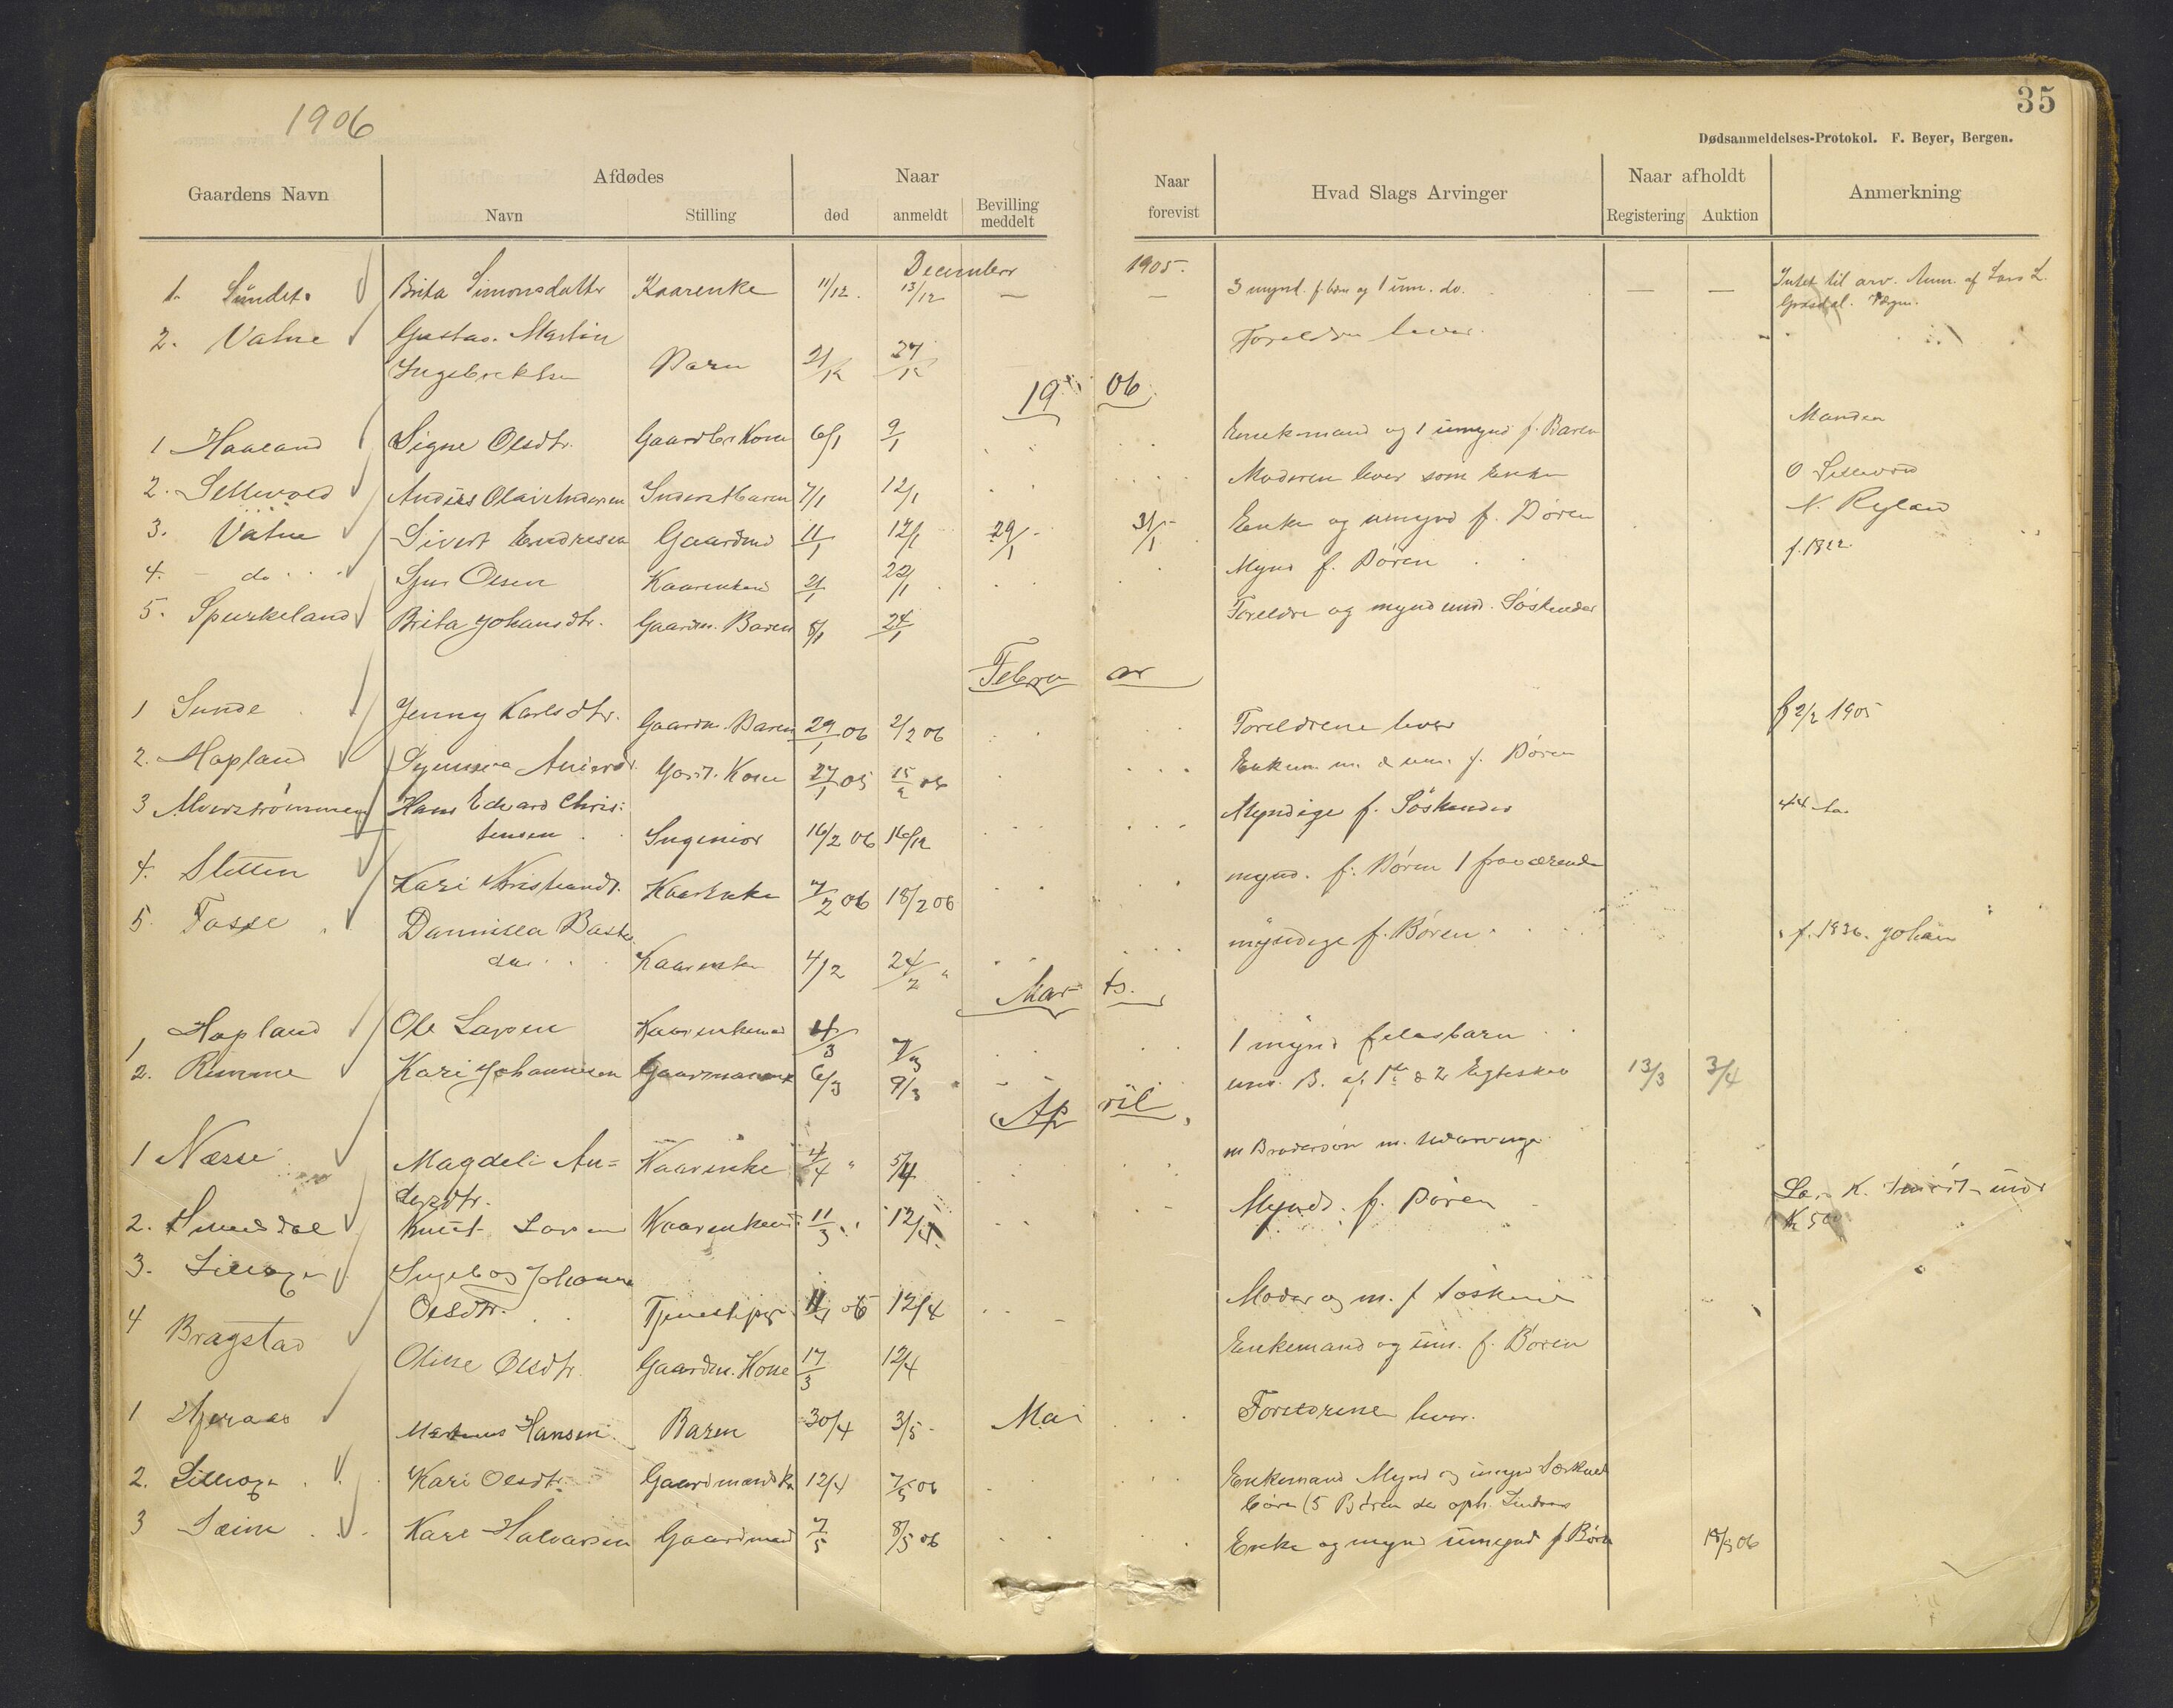 1906
35
Dødsanmeldelses-Protokol. F. Beyer, Bergen.
Gaardens Navn
Afdødes
Navn
Stilling
Naar
død
anmeldt
Bevilling meddelt
Naar forevist
Hvad Slags Arvinger
Naar afholdt
Registering
Auktion
Anmerkning
December 1905.
1. Sundet Brita Simonsdatter Kaarenke 11/12. 13/12 — — 3 mynd. f. børn og 1 um. do. — — Intet til arv. Anm. af Lars L.
2. Vatne Gustav Martin Foreldre lever
Ingebrektsen Barn 21/12 27/12
1906
1 Haaland Signe Olsdtr. Gaardbr. Kone 6/1 9/1 Enkemand og 1 umynd f. Barn Manden
2. Sellevold Anders Olai Andersen Inderst Barn 7/1 12/1 Moderen lever som Enke O Sellevold
3. Vatne Sivert Endresen Gaardmd 11/1 12/1 29/1 31/1 Enke og umynd f. Børen N. Rylan
4. do Sjur Olsen Kaarenkmd 21/1 22/1 Mynd f. Børen f. 1822
5. Spurkeland Brita Johansdtr. Gaardm. Baren 8/1 24/1 Foreldre og mynd umd. Søskender
Februar
1 Sunde Jenny Karlsdtr. Gaardm. Baren 29/1 06 2/2 06 Foreldrene lever f 2/2 1905
2. Hopland Anders Kone 27/1 05 15/2 06 Enkem m. & um. f. Børen
3 Alverstrømmen Hans Edvard Chris-
tensen Ingeniør 16/2 06 16/12 Myndige f. Søskender
4. Sletten Kari Kristiansd. Kaarenke 7/2 06 18/2 06 mynd. f. Børen 1 fraværende
5. Fosse Dammisea Bast
dtr Kaarenke 4/2 24/2 " myndige f. Børen f. 1836. Johan
Marts.
1, Hopland Ole Larsen Kaarenkemd 4/3 7/3 1 mynd fellesbarn
2. Rimme Kari Johannesen Gaardmand 6/3 9/3 um. B. af 1ste & 2 Egteskab 13/3 3/4
April
1 Næsse Magdeli An=
dersdtr. Kaarenke 4/4 " 5/4 m Brodersøn m. Udarvinge
2. Knut Larsen Kaarenkem 11/3 12/4 Mynd. f. Børen
K 50
3. Lilleoge Ingeborg Johanne
Olsdtr. Tjenestepige 11/4 06 12/4 Moder og m. f Søskend
4 Bragstad Oline Olsdtr. Gaardm. Kone 17/3 12/4 Enkemand og um. f. Børen
Mai
1 Hjeraas Hansen Baren 30/4 3/5 Foreldrene lever.
2. Lilleoge Kari Olsdtr. Gaardmandsk. 12/4 7/5 06 Enkemand Mynd og umynd Særkuld
børn (5 Børen der oph.
3 Seim Kare Halvorsen Gaardmand 7/5 8/5 06 Enke og mynd umynd f Børn 18/5 06